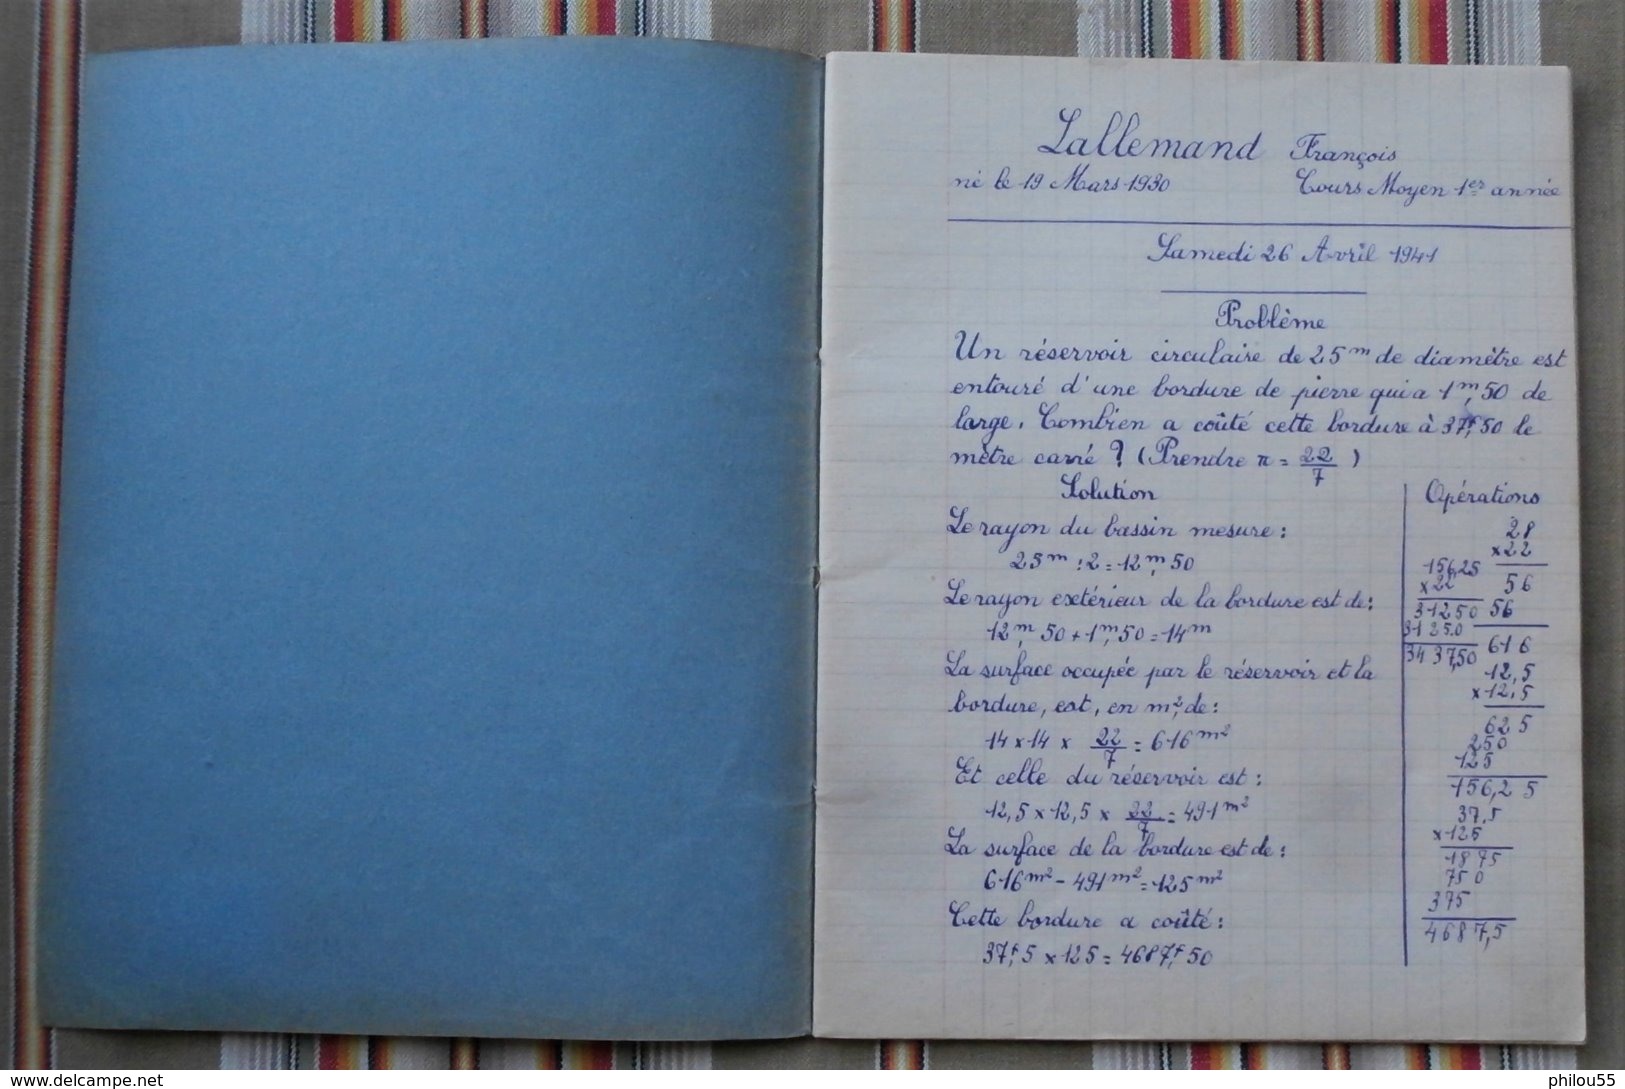 Lallemand François
né le 19 Mars 1930 Cours Moyen 1er année
Samedi 26 Avril 1941
Problème
Un réservoir circulaire de 25m de diamètre est
entouré d'une bordure de pierre qui a 1m,50 de
large. Combien a coûté cette bordure à 37f,50 le
mètre carré ? (Prendre π = 22/7)
Solution
Le rayon du bassin mesure :
25m : 2 = 12m,50
Le rayon extérieur de la bordure est de :
12m,50 + 1m,50 = 14m
La surface occupée par le réservoir et la
bordure, est, en m², de :
14 x 14 x 22/7 = 616m²
Et celle du réservoir est :
12,5 x 12,5 x 22/7 = 491m²
La surface de la bordure est de :
616m² - 491m² = 125m²
Cette bordure a coûté :
37f,5 x 125 = 4687f,50
Opérations
28
x 22
56
56
616
156,25
x 22
31250
31250
3437,50
12,5
x 12,5
625
250
125
156,25
37,5
x 125
1875
750
375
4687,5
www.delcampe.net
philou55